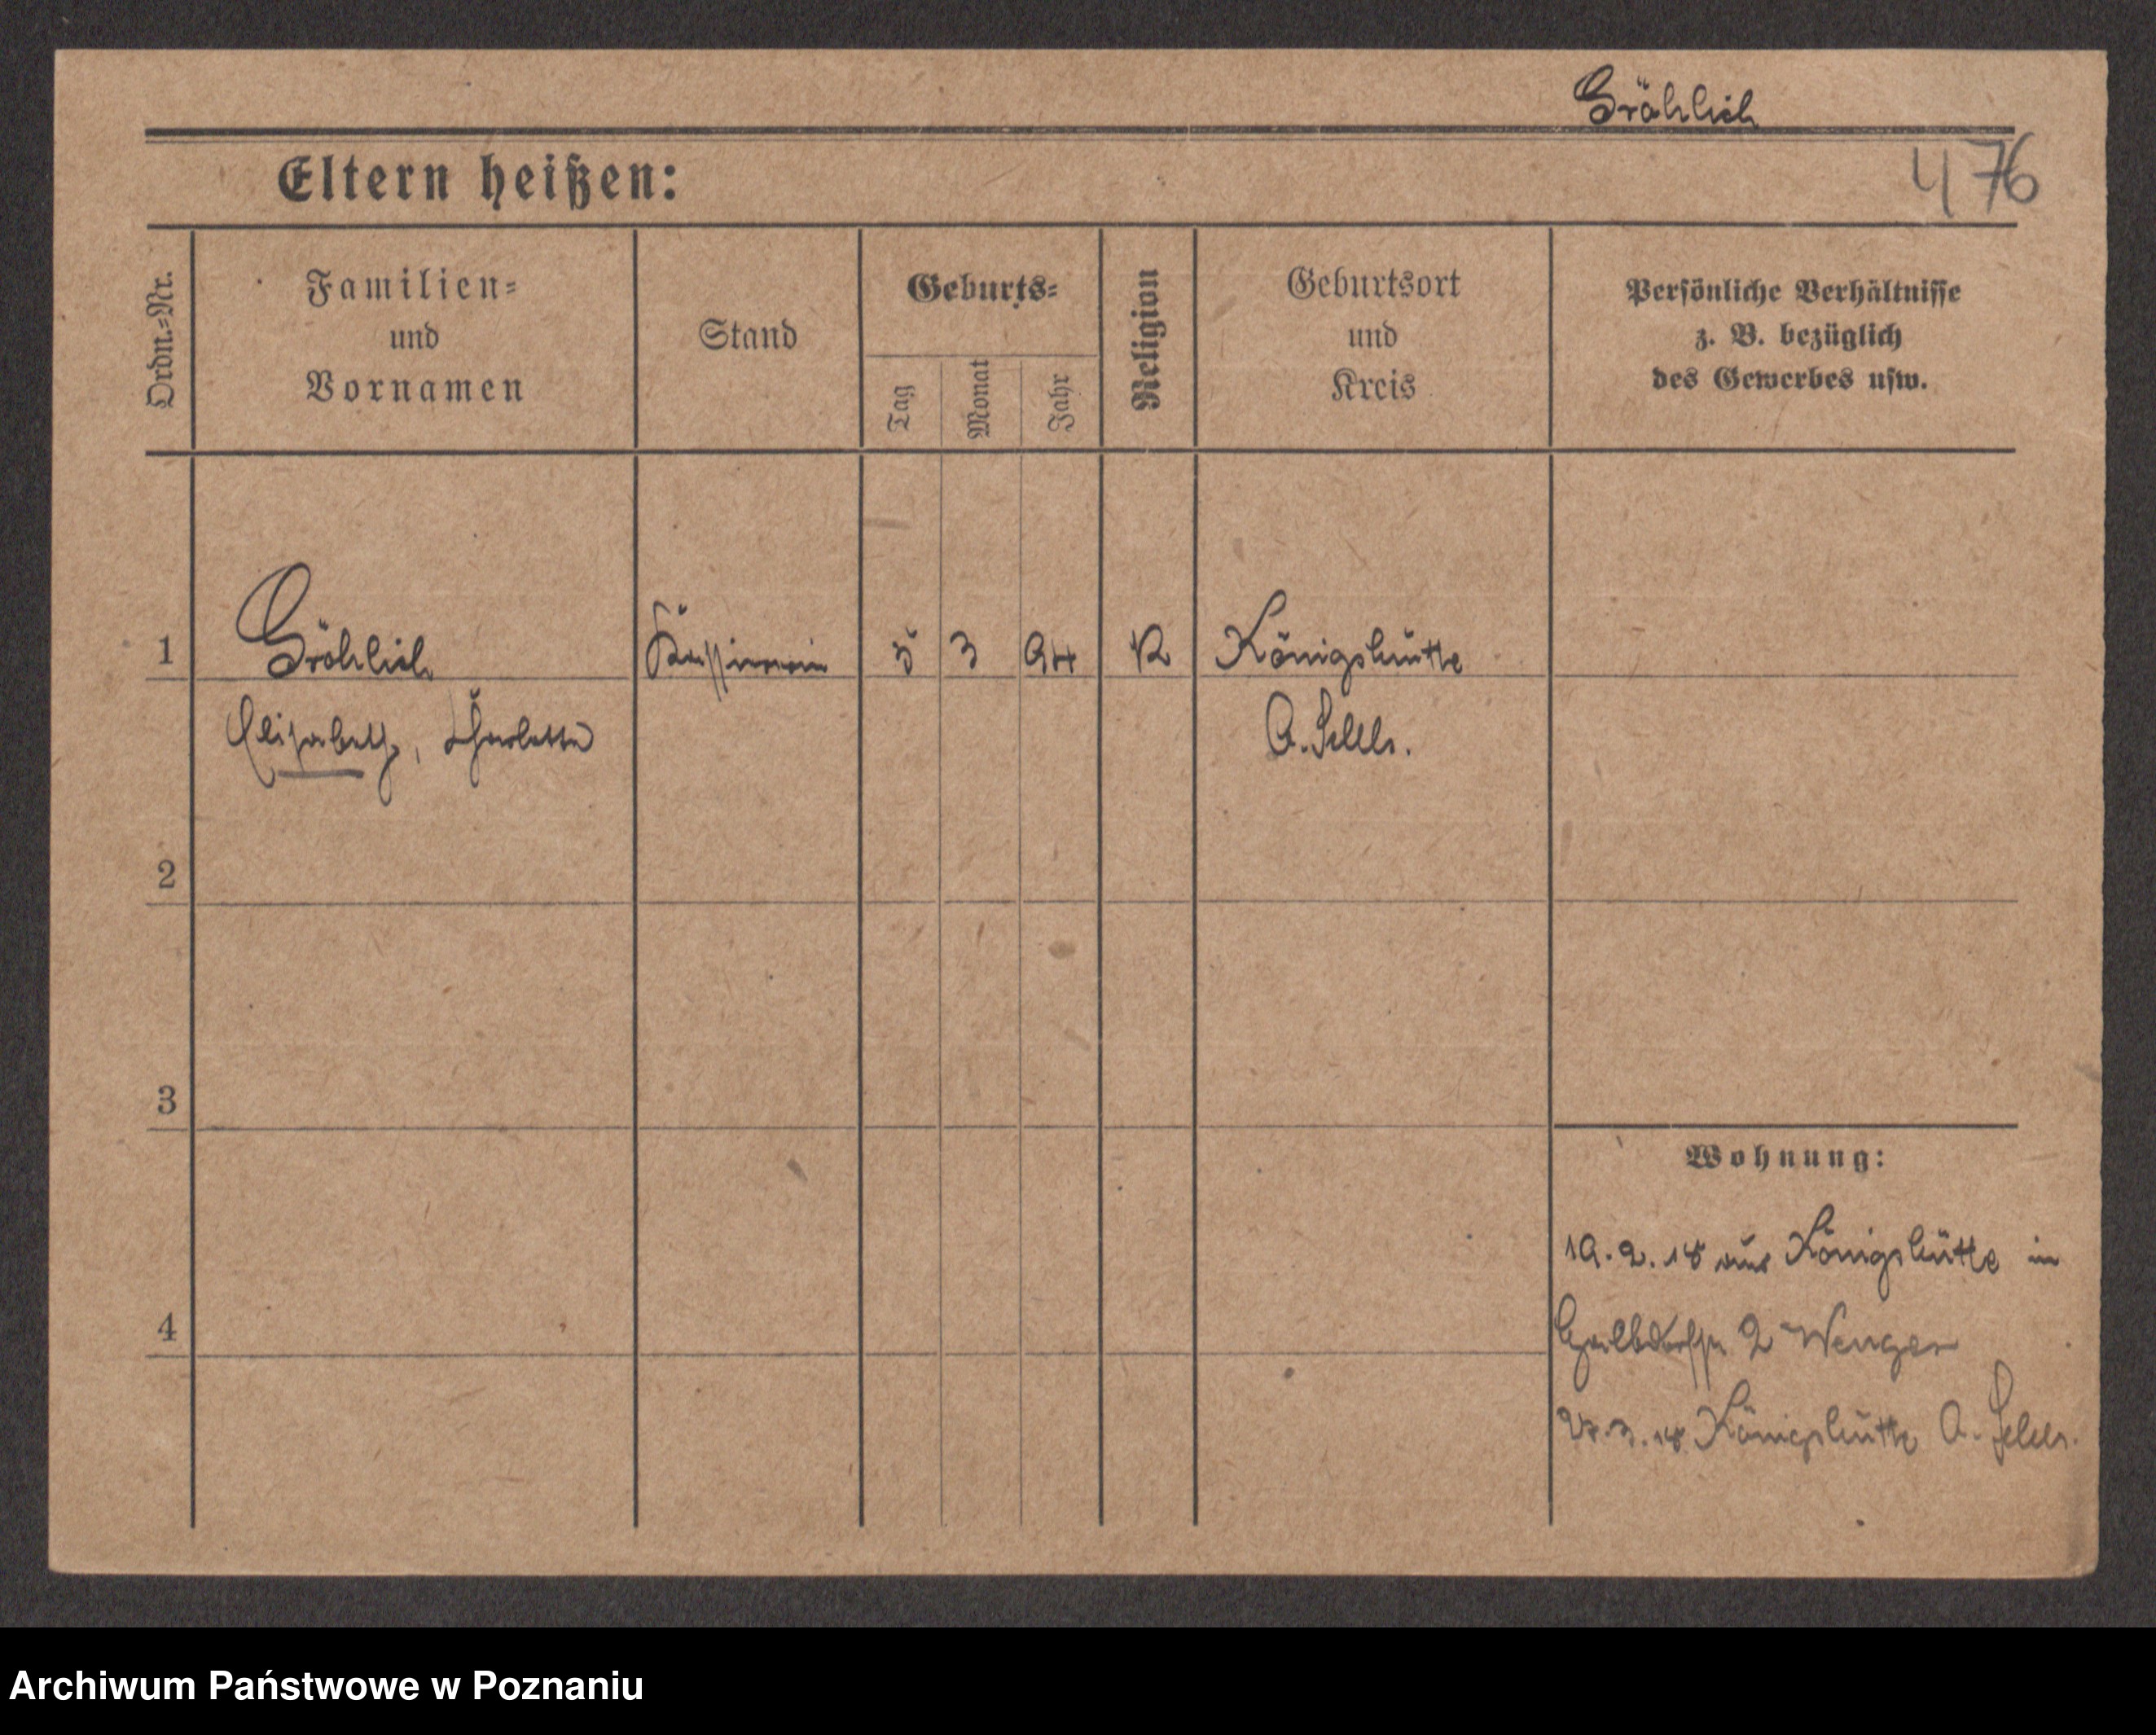 Gröhlich
Eltern heißen:
476
Ordn.=Nr.
Familien=
und
Vornamen
Stand
Geburts=
Tag
Monat
Jahr
Religion
Geburtsort
und
Kreis
Persönliche Verhältnisse
z. B. bezüglich
des Gewerbes usw.
1
Gröhlich
Kassiererin
5 3 94
K
Königshütte
Elisabeth, Charlotte
O. Schls.
2
3
4
Wohnung:
19.2.18 aus Königshütte in
2 Wenger
3.18 Königshütte O. Schls.
Archiwum Państwowe w Poznaniu